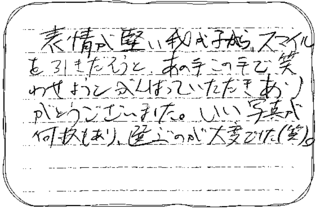 表情が堅い我が子から、スマイル
を引きだそうと、あの手この手で笑
わせようとがんばっていただきあり
がとうございました。いい写真が
何枚もあり、選ぶのが大変でした(笑)。